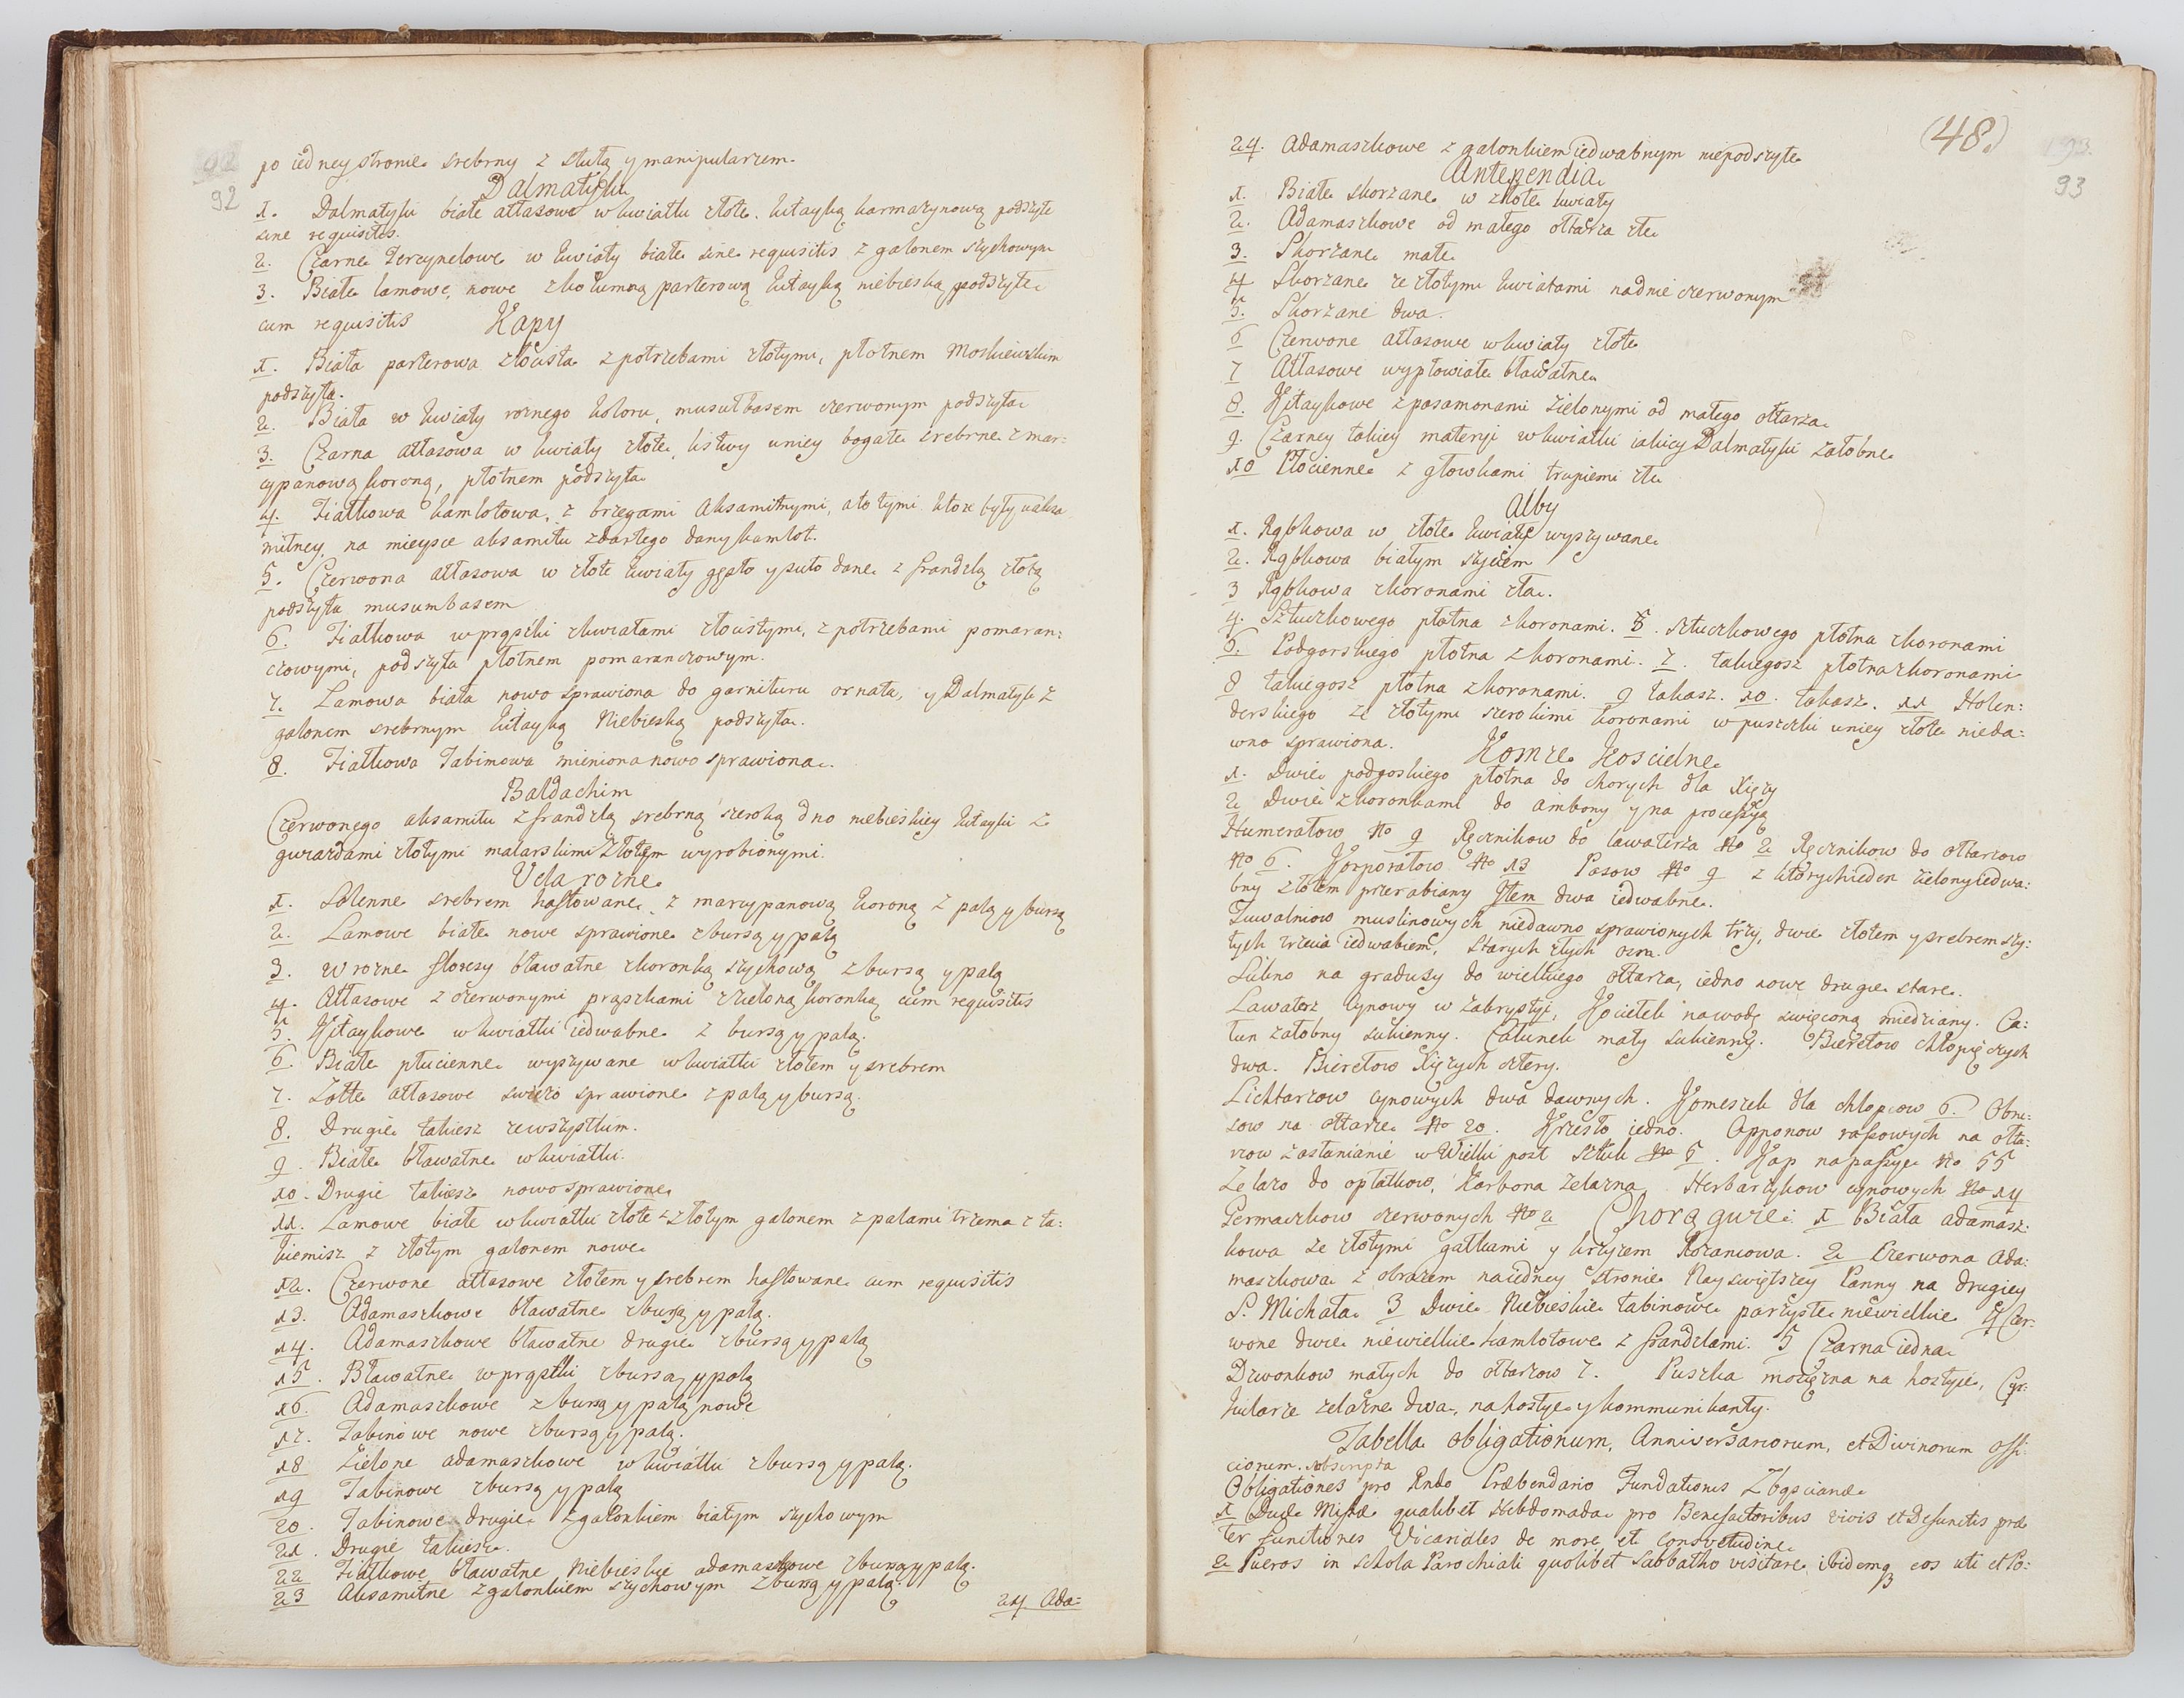 92
po iedney stronie srebrny z stułą y manipularzem.
Dalmatyki
1. Dalmatyki białe atłasowe w kwiatki złote. kitayką karmazynową podszyte
sine requisitis.
2. Czarne Tercynelowe w kwiaty białe sine requisitis z galonem szychowym
3. Białe lamowe, nowe z kolumną parterową kitayką niebieską podszyte
cum requisitis Kapy
1. Biała parterowa złocista z potrzebami złotymi, płotnem Moskiewskim
podszyta.
2. Biała w kwiaty roznego koloru, musułbasem czerwonym podszyta
3. Czarna atłasowa w kwiaty złote, listwy u niey bogate srebrne z mar:
cypanową koroną, płotnem podszyta
4. Fiałkowa kamlotowa, z brzegami Aksamitnymi, a to tymi ktore były u aksa
mitney, na mieysce aksamitu zdartego dany kamlot.
5. Czerwona atłasowa w złote kwiaty gęsto y suto dane z frandzlą złotą
podszyta musumbasem
6. Fiałkowa w prąszki z kwiatami złocistymi, z potrzebami pomaran:
czowymi, podszyta płotnem pomaranczowym.
7. Lamowa biała nowo sprawiona do garnituru ornatu, y Dalmatyk z
galonem srebrnym kitayką Niebieską podszyta.
8. Fiałkowa Tabinowa mieniona nowo sprawiona.
Baldachim
Czerwonego aksamitu z frandzlą srebrną szeroką dno niebieskiey kitayki z
gwiazdami złotymi malarskimi złotem wyrobionymi.
Vela rozne
1. Solenne srebrem haftowane, z marcypanową koroną z palą y bursą
2. Lamowe białe nowe sprawione z bursą y palą
3. W rozne floresy bławatne z koronką szychową z bursą y palą
4. Atłasowe z czerwonymi prąszkami z zieloną koronką cum requisitis
5. Kitaykowe w kwiatki iedwabne z bursą y palą.
6 Białe płucienne wyszywane w kwiatki złotem y srebrem
7. Zołte atłasowe swiezo sprawione z palą y bursą.
8. Drugie takiesz ze wszystkim.
9. Białe bławatne w kwiatki.
10. Drugie takiesz nowo sprawione
11. Lamowe białe w kwiatki złote z złotym galonem z palami trzema z ta:
kiemisz z złotym galonem nowe
12. Czerwone atłasowe złotem y srebrem haftowane cum requisitis
13. Adamaszkowe bławatne z bursą y palą.
14. Adamaszkowe bławatne drugie z bursą y palą
15. Bławatne w prąszki z bursą y palą
16. Adamaszkowe z bursą y palą nowe
17. Tabinowe nowe z bursą y palą.
18 Zielone adamaszkowe w kwiatki z bursą y palą.
19 Tabinowe z bursą y palą
20. Tabinowe drugie z galonkiem białym szychowym
21. Drugie takiesz.
22 Fiałkowe bławatne Niebieskie adamaszkowe z bursą y palą.
23 Aksamitne z galonkiem szychowym z bursą y palą.
24 Ada:
(48.)
93.
93
24. Adamaszkowe z galonkiem iedwabnym niepodszyte
Antependia.
1. Białe skorzane w złote kwiaty
2. Adamaszkowe od małego ołtarza złe
3. Skorzane małe
4 Skorzane ze złotymi kwiatami na dnie czerwonym
5. Skorzane dwa.
6 Czerwone atłasowe w kwiaty złote
7 Atłasowe wypłowiałe bławatne
8. Kitaykowe z pasamonami zielonymi od małego ołtarza
9. Czarney takiey materyi w kwiatki iakiey Dalmatyki załobne
10 Płocienne z głowkami trupiemi złe
Alby
1. Rąbkowa w złote kwiaty wyszywane
2. Rąbkowa białym szyciem
3 Rąbkowa z koronami zła.
4. Sztuczkowego płotna z koronami. 5. sztuczkowego płotna z koronami
6. Podgorskiego płotna z koronami. 7. takiegosz płotna z koronami
8 takiegosz płotna z koronami. 9 takasz. 10. takasz. 11 Holen:
derskiego ze złotymi szerokimi koronami w puszczki u niey złote nieda:
wno sprawiona. Komże Koscielne
1. Dwie podgoskiego płotna do chorych dla Xięzy
2 Dwie z koronkami do ambony y na processyą
Humerałow No 9 Ręcznikow do lawaterza No 2 Ręcznikow do ołtarzow
No 6. Korporałow No 13 Pasow No 9 z ktorych ieden zielony iedwa:
bny złotem przerabiany Item dwa iedwabne.
Tuwalniow muslinowych niedawno sprawionych trzy, dwie złotem y srebrem szy:
tych trzecia iedwabiem, starych złych osm.
Sukno na gradusy do wielkiego ołtarza, iedno nowe drugie stare.
Lawaterz cynowy w zakrystyi, Kociełek na wodę swięconą miedziany. Ca:
łun załobny sukienny. Całunek mały sukienny. Bieretow chłopięczych
dwa. Bieretow Xięzych cztery.
Lichtarzow cynowych dwa dawnych. Komeszek dla chłopcow 6. Obru:
sow na ołtarze No 20. Krzesło iedno. Opponow rasowych na ołta:
rzow zasłanianie w Wielki post sztuk No 5. Kap na passye No 55
Zelazo do opłatkow, Karbona zelazna Herbarzykow cynowych No 14
Germaczkow czerwonych No 2 Chorągwie. 1 Biała adamasz:
kowa ze złotymi gałkami y krzyzem Rozancowa. 2 Czerwona Ada:
maszkowa z obrazem na iedney stronie Nayswiętszey Panny na drugiey
S. Michała. 3 Dwie Niebieskie tabinowe parzyste niewielkie 4 Czer:
wone dwie niewielkie kamlotowe z frandzlami. 5 Czarna iedna
Dzwonkow małych do ołtarzow 7. Puszka mosiężna na hostye, Cyr:
kularze zelazne dwa, na hostye y kommunikanty.
Tabella obligationum, Anniversariorum, et Divinorum offi:
ciorum. subscripta
Obligationes pro Rndo Præbendario Fundationis Zbąsciana
1 Duæ Missæ qualibet Hebdomada pro Benefactoribus vivis et Defunctis præ
ter functiones Vicariales de more et consvetudine
2 Pueros in schola Parochiali quolibet Sabbatho visitare, ibidemq eos uti et Po: